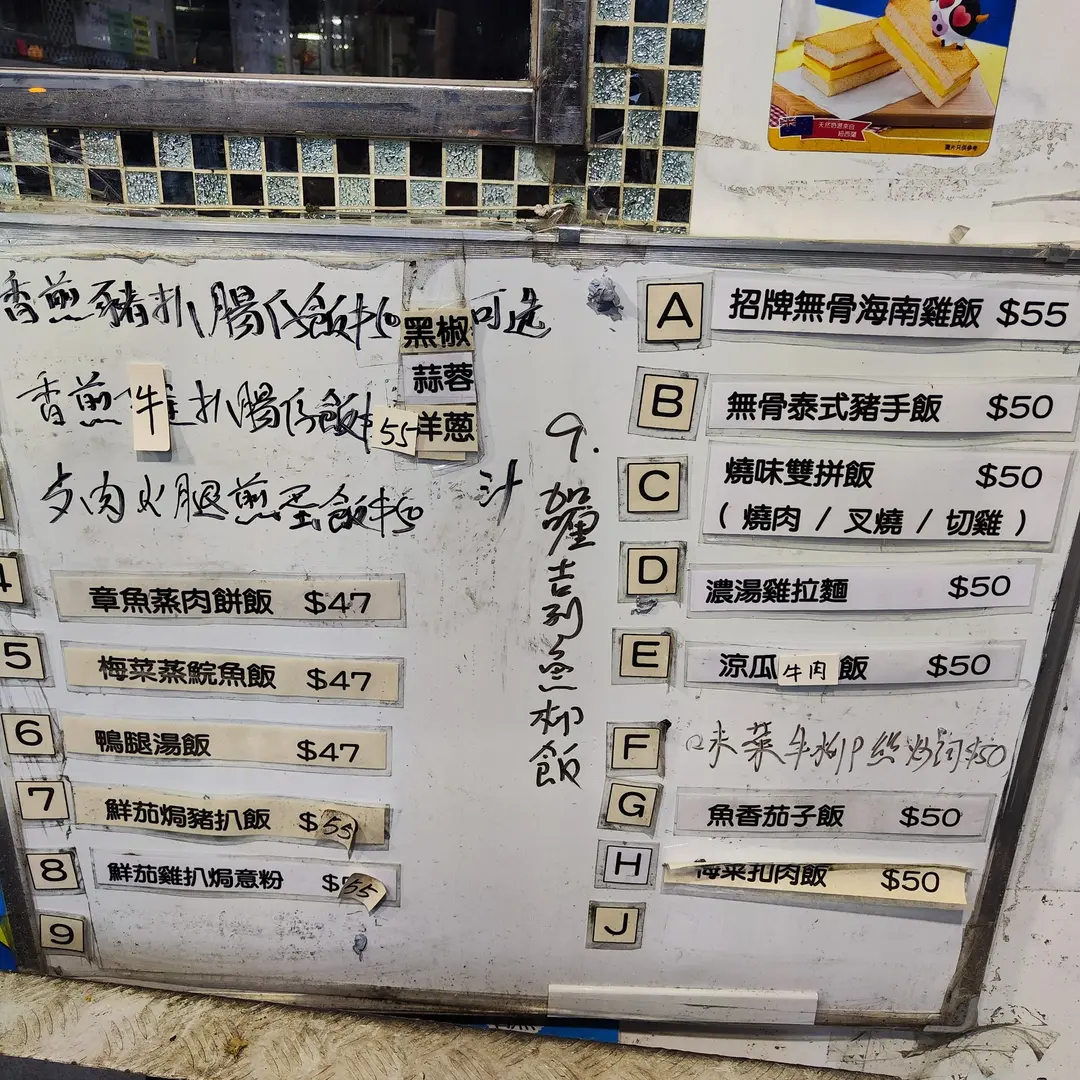 天然奶源來自
紐西蘭
圖片只供參考
香煎豬扒腸仔飯$50
黑椒
可选
蒜蓉
香煎牛扒腸仔飯$55
洋蔥
汁
肉火腿煎蛋飯$50
4
章魚蒸肉餅飯 $47
5
梅菜蒸鯇魚飯 $47
6
鴨腿湯飯 $47
7
鮮茄焗豬扒飯 $55
8
鮮茄雞扒焗意粉 $55
9
9.
咖喱吉列魚柳飯
A
招牌無骨海南雞飯 $55
B
無骨泰式豬手飯 $50
C
燒味雙拼飯 $50
( 燒肉 / 叉燒 / 切雞 )
D
濃湯雞拉麵 $50
E
涼瓜牛肉飯 $50
F
味菜牛柳絲炒河$50
G
魚香茄子飯 $50
H
梅菜扣肉飯 $50
J